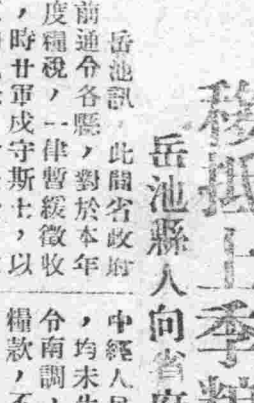 移抵上季糧
岳池縣人向省府
岳池訊，此間省政府
前通令各縣，對於本年
度糧稅，一律暫緩徵收
，時廿軍戍守斯土，以
中經人民
，均未
令南調，
糧款，不